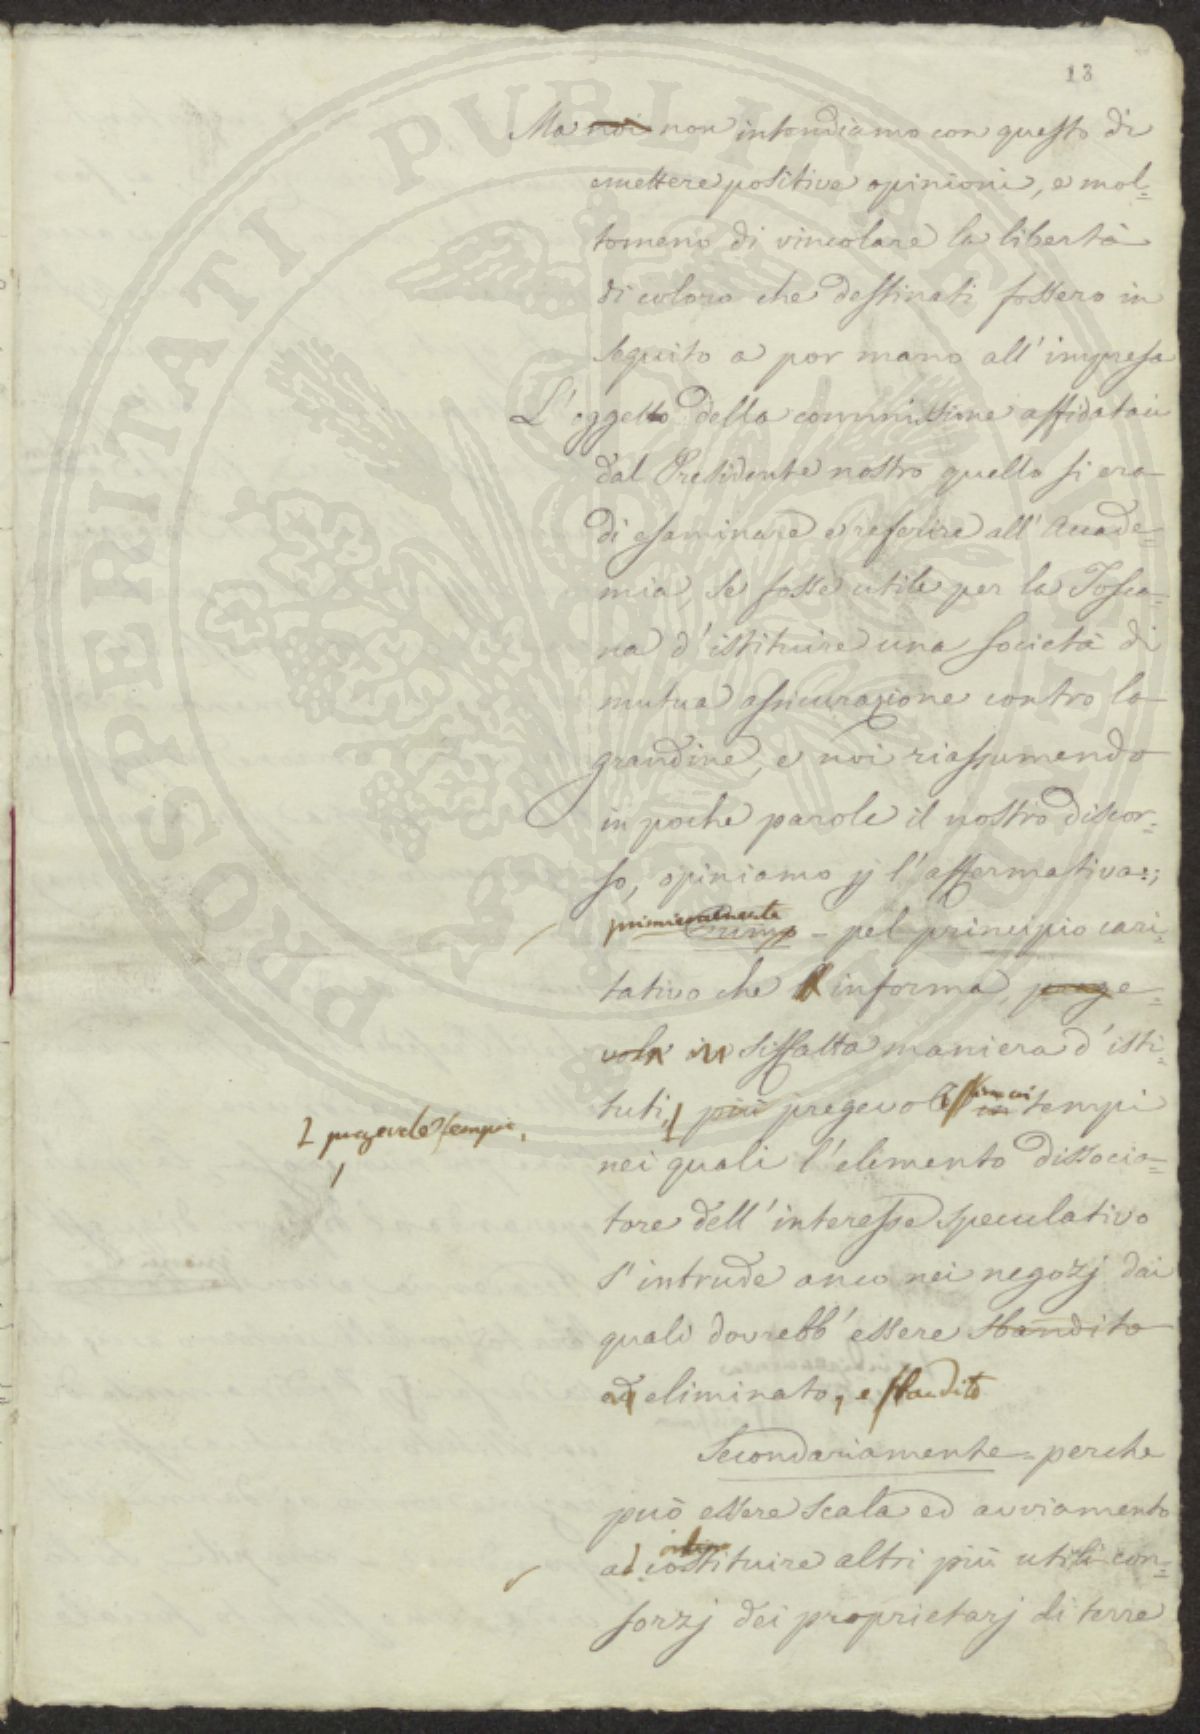 13
Ma noi non intendiamo con questo di
emettere positive opinioni, e mol=
tomeno di vincolare la libertà
di coloro che destinati fossero in
seguito a por mano all'impresa
L'oggetto della commissione affidataci
dal Presidente nostro quello si era
di esaminare e referire all'Accade=
mia, se fosse utile per la Tosca=
na d'istituire una società di
mutua assicurazione contro la
grandine, e noi riassumendo
in poche parole il nostro discor=
so, opiniamo p l'affermativa;
primieramente
Primo = pel principio cari=
tativo che informa, prege=
vole in siffatta maniera d'isti=
tuti, più pregevole in tempi
pregevole sempre,
nei quali l'elimento dissocia=
tore dell'interesse speculativo
s'intrude anco nei negozj dai
quali dovrebb'essere sbandito
ed eliminato, e sbandito
Secondariamente = perche
può essere scala ed avviamento
ad costituire altri più utili con=
sorzj dei proprietarj di terre
PROSPERITATI PUBLICAE